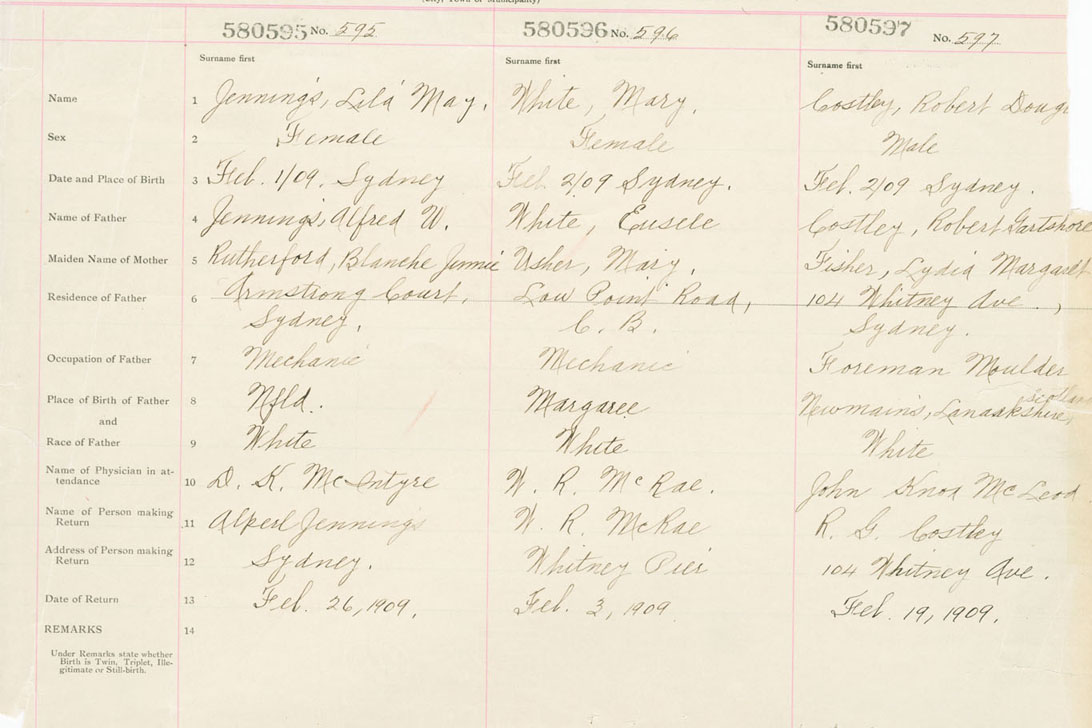 (City, Town or Municipality)
580595 No. 595 580596 No. 596 580597 No. 597
Surname first Surname first Surname first
Name 1 Jennings, Lila May. White, Mary. Costley, Robert Doug
Sex 2 Female Female Male
Date and Place of Birth 3 Feb. 1/09. Sydney Feb. 2/09 Sydney. Feb. 2/09 Sydney.
Name of Father 4 Jennings, Alfred W. White, Eusele Costley, Robert Gartshore
Maiden Name of Mother 5 Rutherford, Blanche Jennie Usher, Mary. Fisher, Lydia Margaret
Residence of Father 6 Armstrong Court, Low Point Road, 104 Whitney Ave.,
Sydney. C. B. Sydney.
Occupation of Father 7 Mechanic Mechanic Foreman Moulder
Place of Birth of Father 8 Nfld. Margaree Newmains, Lanarkshire, Scotland
and
Race of Father 9 White White White
Name of Physician in at-
tendance 10 D. K. McIntyre W. R. McRae. John Knox McLeod
Name of Person making
Return 11 Jennings W. R. McRae R. G. Costley
Address of Person making
Return 12 Sydney. Whitney Pier 104 Whitney Ave.
Date of Return 13 Feb. 26, 1909. Feb. 3, 1909 Feb. 19, 1909.
REMARKS 14
Under Remarks state whether
Birth is Twin, Triplet, Ille-
gitimate or Still-birth.